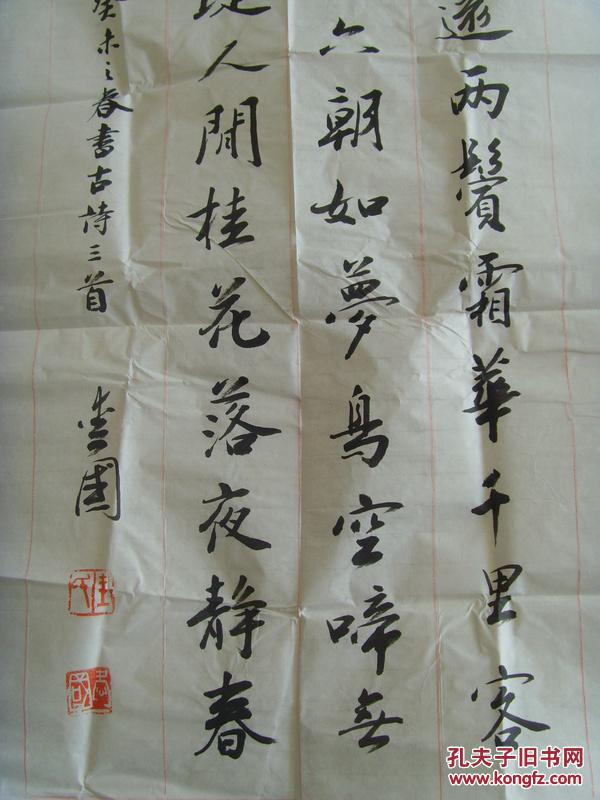 两鬢霜華千里客
六朝如夢鳥空啼無
人閒桂花落夜静春
癸未之春書古詩三首
愛國
孔夫子旧书网
www.kongfz.com